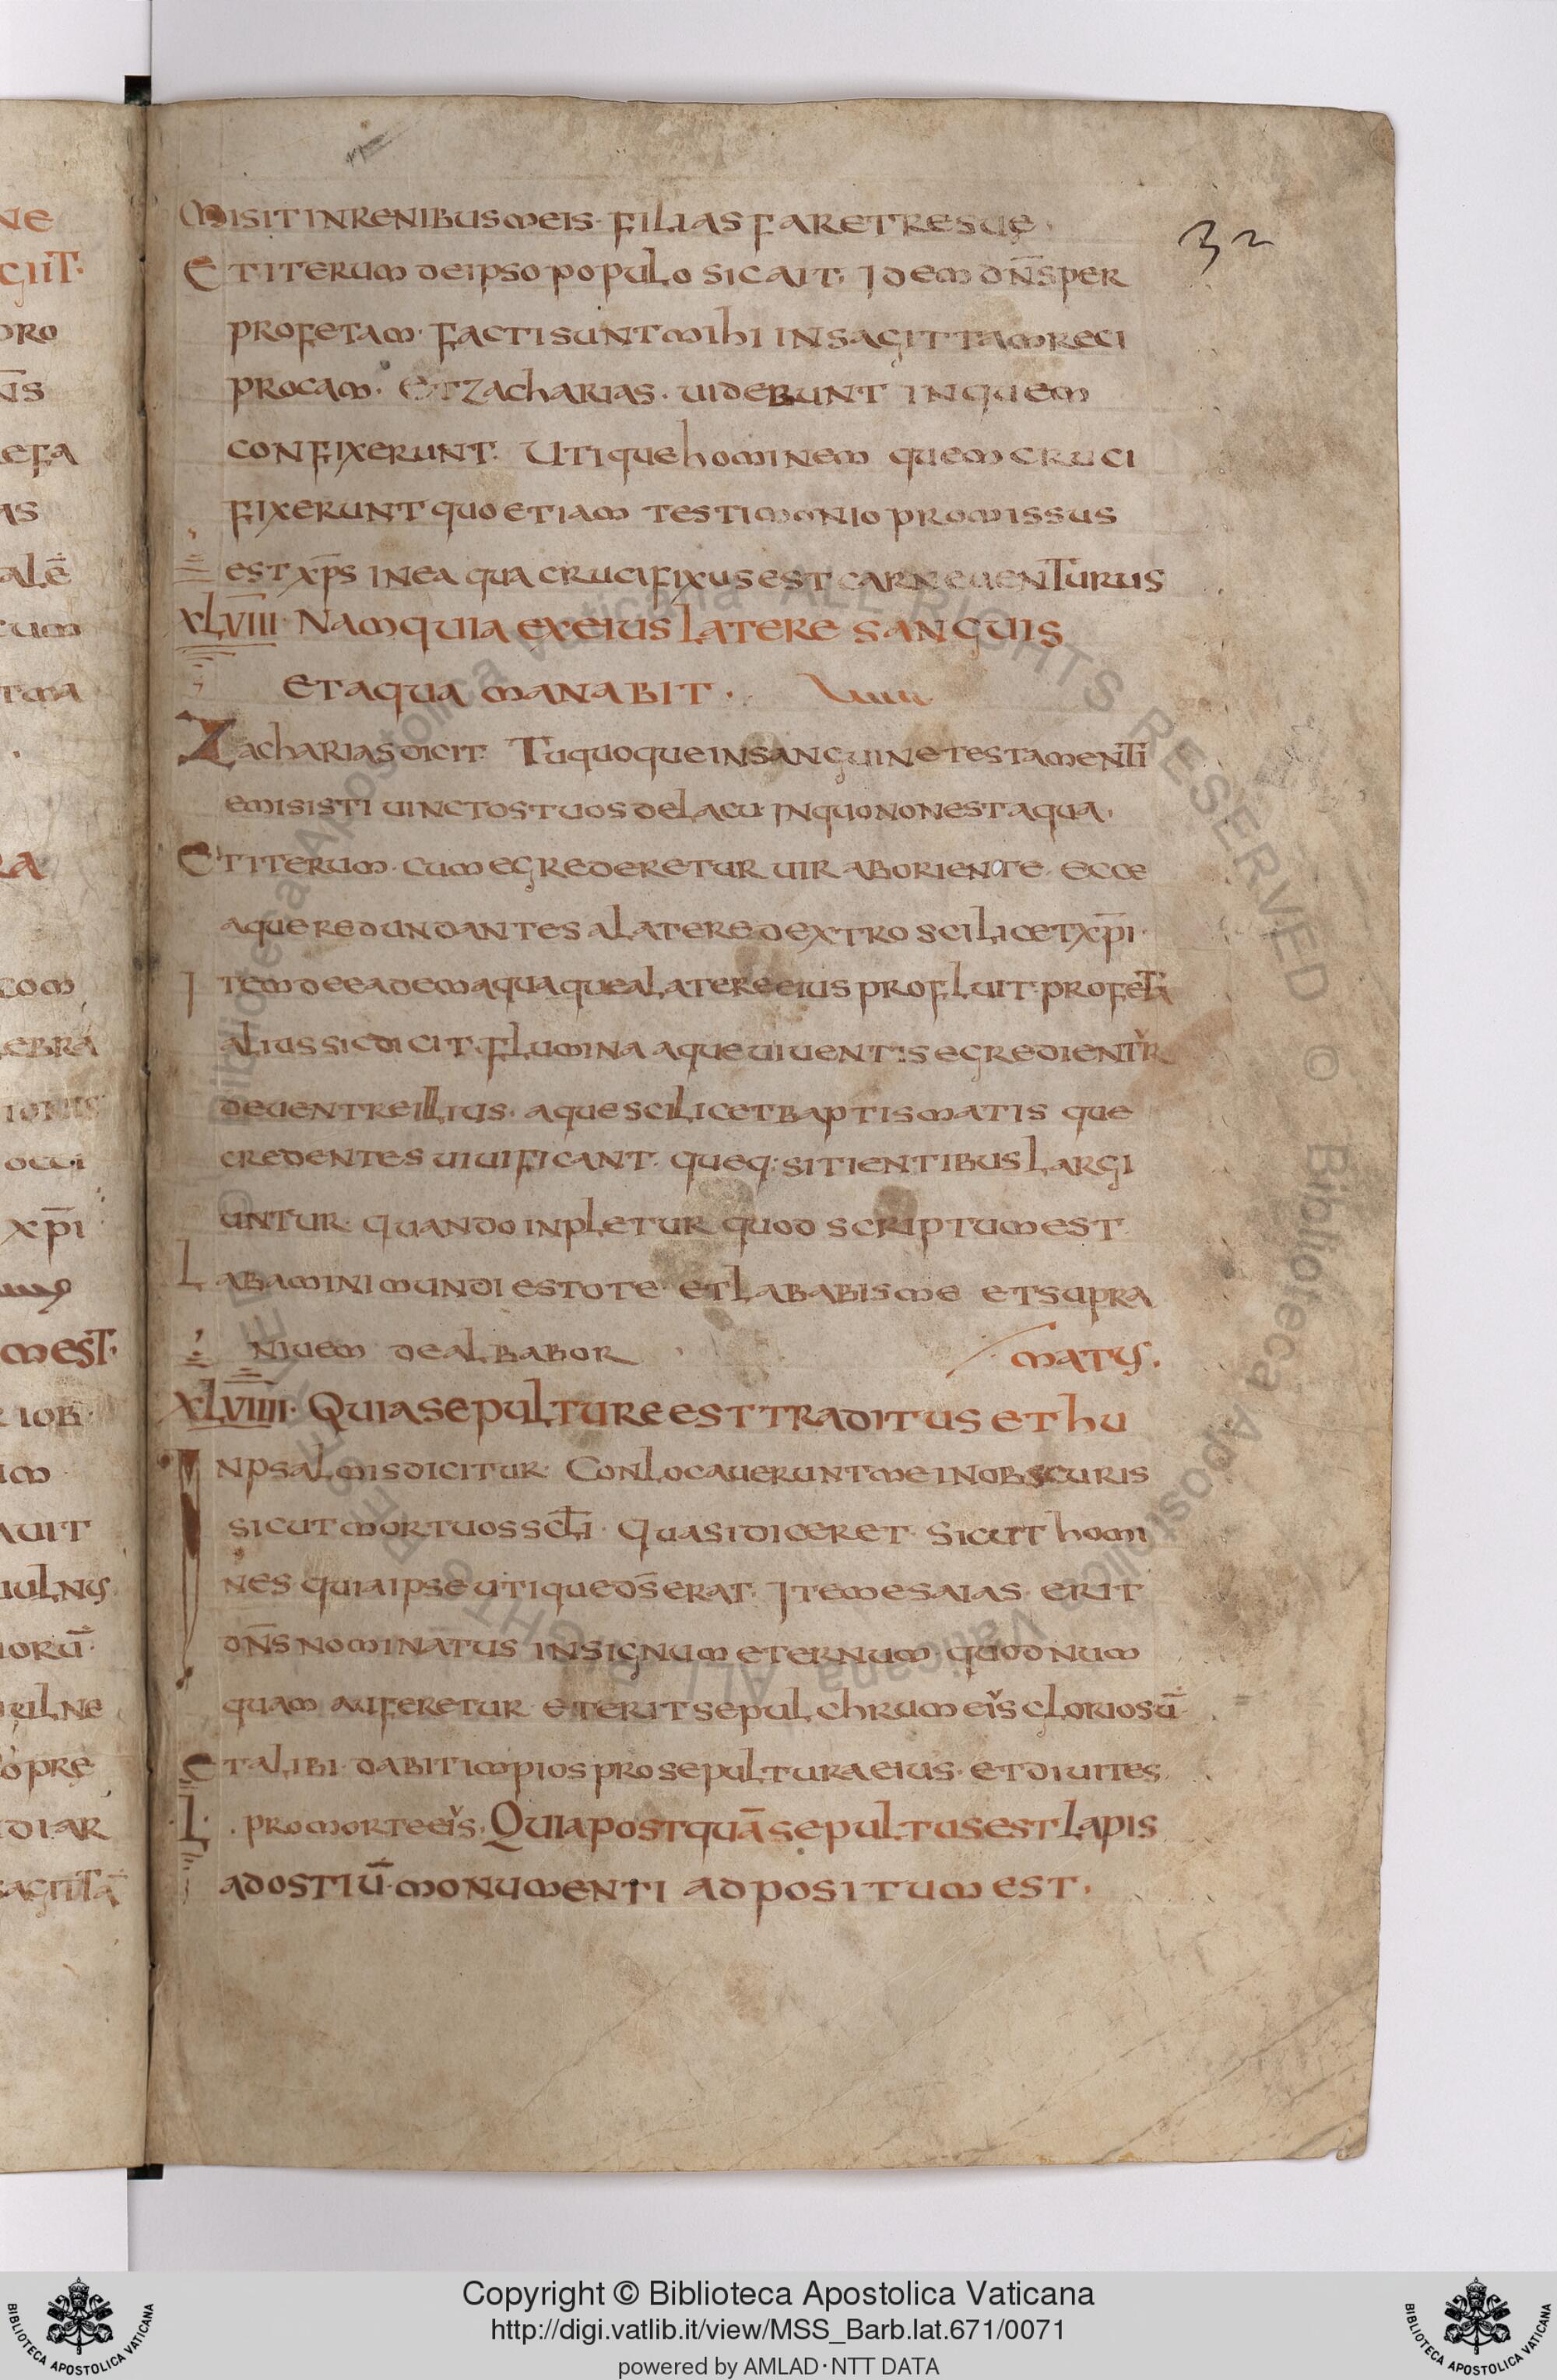 misit in renibus meis · filias faretre suę ·
32
Et iterum de ipso populo sic ait · Idem dn̄s per
profetam · facti sunt mihi in sagittam reci
procam · et zacharias · uidebunt in quem
confixerunt · utique hominem quem cruci
fixerunt quo etiam testimonio promissus
est xp̄s in ea qua crucifixus est carne uenturus
XLVIII · Nam quia ex eius latere sanguis
et aqua manabit ·
Zacharias dicit · Tu quoque in sanguine testamenti
emisisti uinctos tuos de lacu in quo non est aqua ·
Et iterum · cum egrederetur uir ab oriente · ecce
aque redundantes a latere dextro scilicet xp̄i ·
Item de eadem aqua que a latere eius profluit · profeta
alius sic dicit · flumina aque uiuentis egredientur
de uentre illius · aque scilicet baptismatis que
credentes uiuificant · queq: sitientibus largi
untur · quando inpletur quod scriptum est
Labamini mundi estote · et lababis me et supra
niuem dealbabor
matus ·
XLVIIII · Quia sepulture est traditus et hu
In psalmis dicitur · Conlocauerunt me in obscuris
sicut mortuos scl̄i · quasi diceret · sicut homi
nes quia ipse utique ds̄ erat · Item esaias · erit
dn̄s nominatus in signum eternum quod num
quam auferetur · et erit sepulchrum eius gloriosū
Et alibi · dabit impios pro sepultura eius · et diuites
· L · pro morte eius · Quia postquā sepultus est lapis
ad ostiū monumenti adpositum est ·
Copyright © Biblioteca Apostolica Vaticana
http://digi.vatlib.it/view/MSS_Barb.lat.671/0071
powered by AMLAD·NTT DATA
BIBLIOTECA APOSTOLICA VATICANA
BIBLIOTECA APOSTOLICA VATICANA